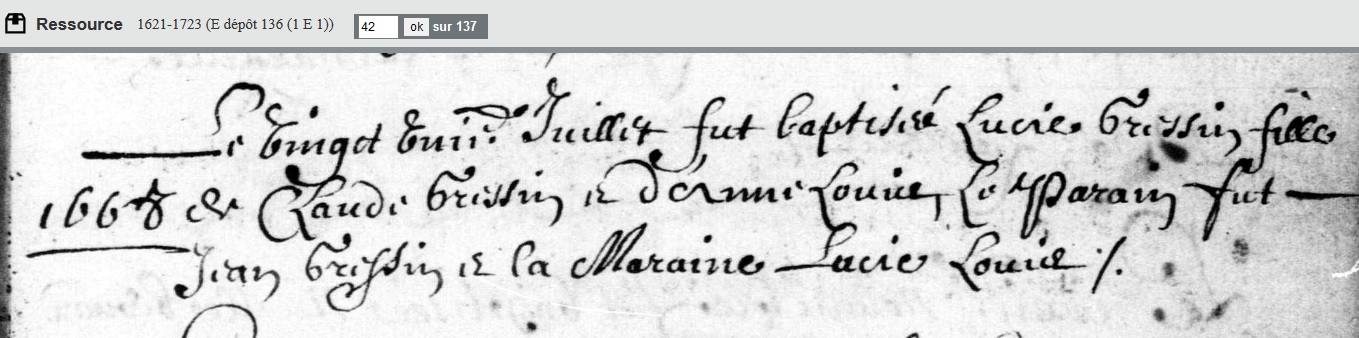 Ressource 1621-1723 (E dépôt 136 (1 E 1)) 42 ok sur 137
Le vingt Juillet fut baptiseé Lucie Gressin fille
1668 de Claude Gressin et d'Anne Louue, Le Parain fut
Jean Gressin et la Maraine Lucie Louue /.